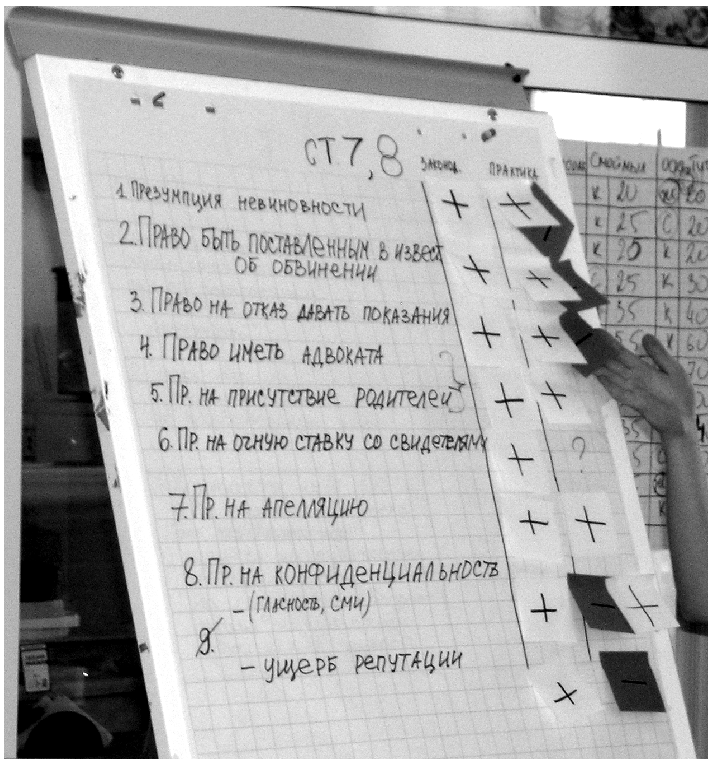 СТ 7, 8
ЗАКОНОД. ПРАКТИКА
1. ПРЕЗУМПЦИЯ НЕВИНОВНОСТИ + + -
2. ПРАВО БЫТЬ ПОСТАВЛЕННЫМ В ИЗВЕСТ
ОБ ОБВИНЕНИИ + +
3. ПРАВО НА ОТКАЗ ДАВАТЬ ПОКАЗАНИЯ + + -
4. ПРАВО ИМЕТЬ АДВОКАТА
5. ПР. НА ПРИСУТСТВИЕ РОДИТЕЛЕЙ + +
6. ПР. НА ОЧНУЮ СТАВКУ СО СВИДЕТЕЛЯМИ + ?
7. ПР. НА АПЕЛЛЯЦИЮ + +
8. ПР. НА КОНФИДЕНЦИАЛЬНОСТЬ
- (ГЛАСНОСТЬ, СМИ) + - +
9.
- УЩЕРБ РЕПУТАЦИИ + -
Семейный
К 20
К 25 С 20
К 20 К 20
25 К 30
35 К 40
К 60